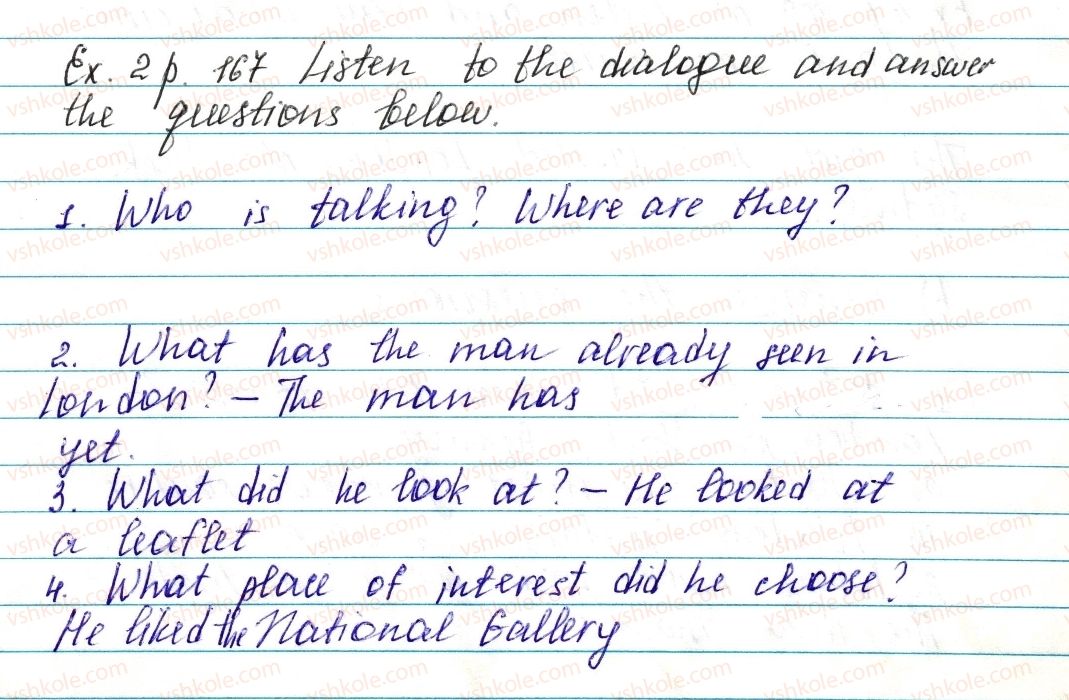 Ex. 2 p. 167 Listen to the dialogue and answer
the questions below.
1. Who is talking? Where are they?
2. What has the man already seen in
London? – The man has
yet.
3. What did he look at? – He looked at
a leaflet
4. What place of interest did he choose?
He liked the National Gallery
vshkole.com